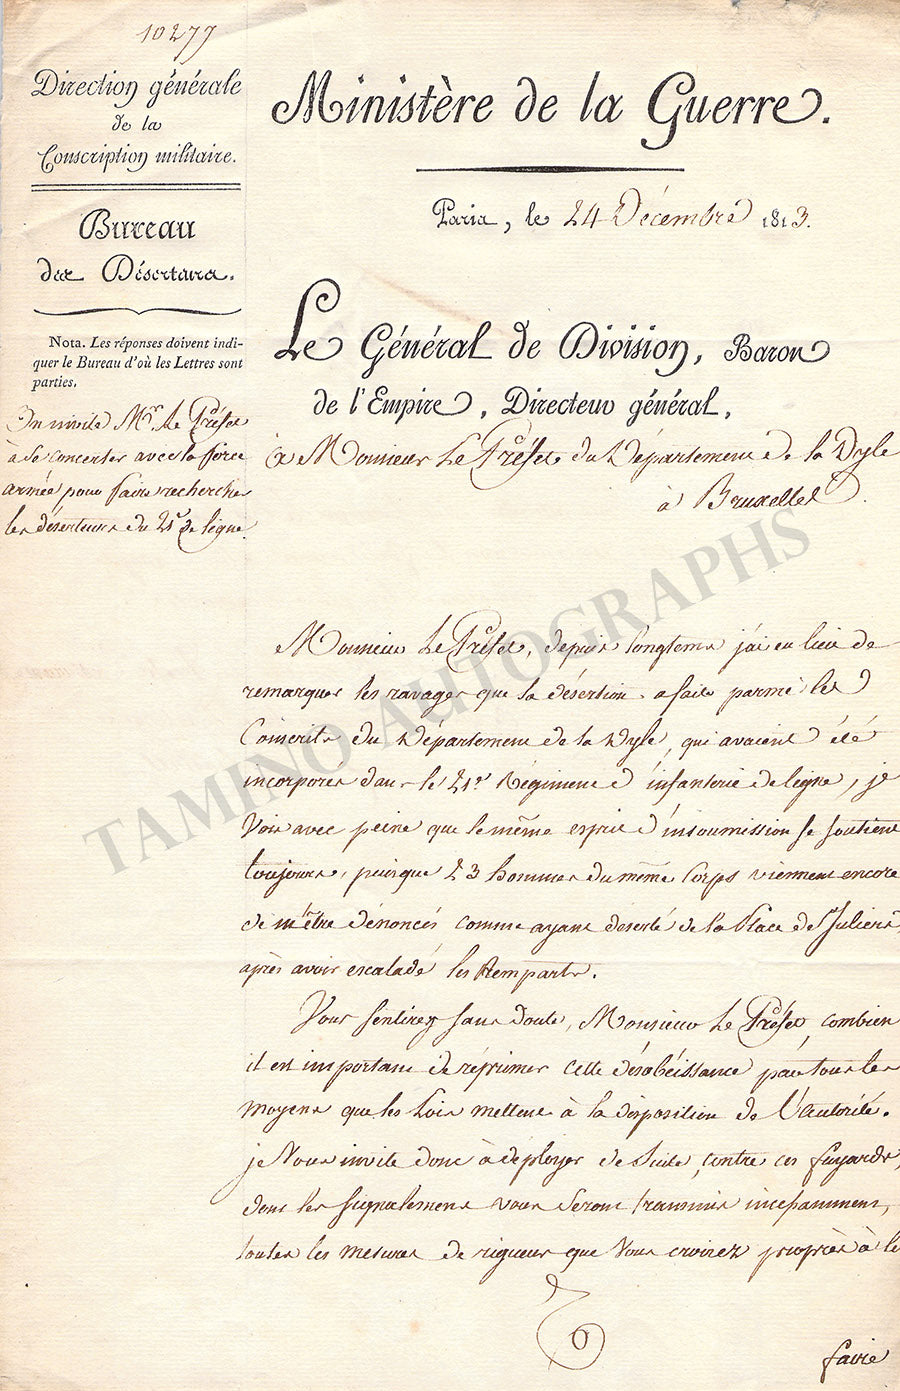 10277
Direction générale
de la
Conscription militaire.
Bureau
des Déserteurs.
Nota. Les réponses doivent indi-
quer le Bureau d'où les Lettres sont
parties.
On invite Mr. Le Préfet
à se concerter avec la force
armée pour faire rechercher
les déserteurs du 21e de ligne.
Ministère de la Guerre.
Paris, le 24 Décembre 1813.
Le Général de Division, Baron
de l'Empire, Directeur général,
à Monsieur Le Préfet du Département de la Dyle
à Bruxelles.
Monsieur Le Préfet, depuis longtems j'ai eu lieu de
remarquer les ravages que la désertion a fait parmi les
Conscrits du Département de la Dyle, qui avaient été
incorporés dans le 21e Régiment d'infanterie de ligne, je
vois avec peine que le même esprit d'insoumission se soutient
toujours, puisque 23 hommes du même Corps viennent encore
de m'être dénoncés comme ayant déserté de la Place de Juliers,
après avoir escaladé les Remparts.
Vous sentirez sans doute, Monsieur Le Préfet, combien
il est important de réprimer cette désobéissance par tous les
moyens que les lois mettent à la disposition de l'autorité.
je Vous invite donc à déployer de suite, contre ces fuyards,
dont les signalemens vous seront transmis incessamment,
toutes les mesures de rigueur que Vous croirez propres à le
faire
TAMINO AUTOGRAPHS